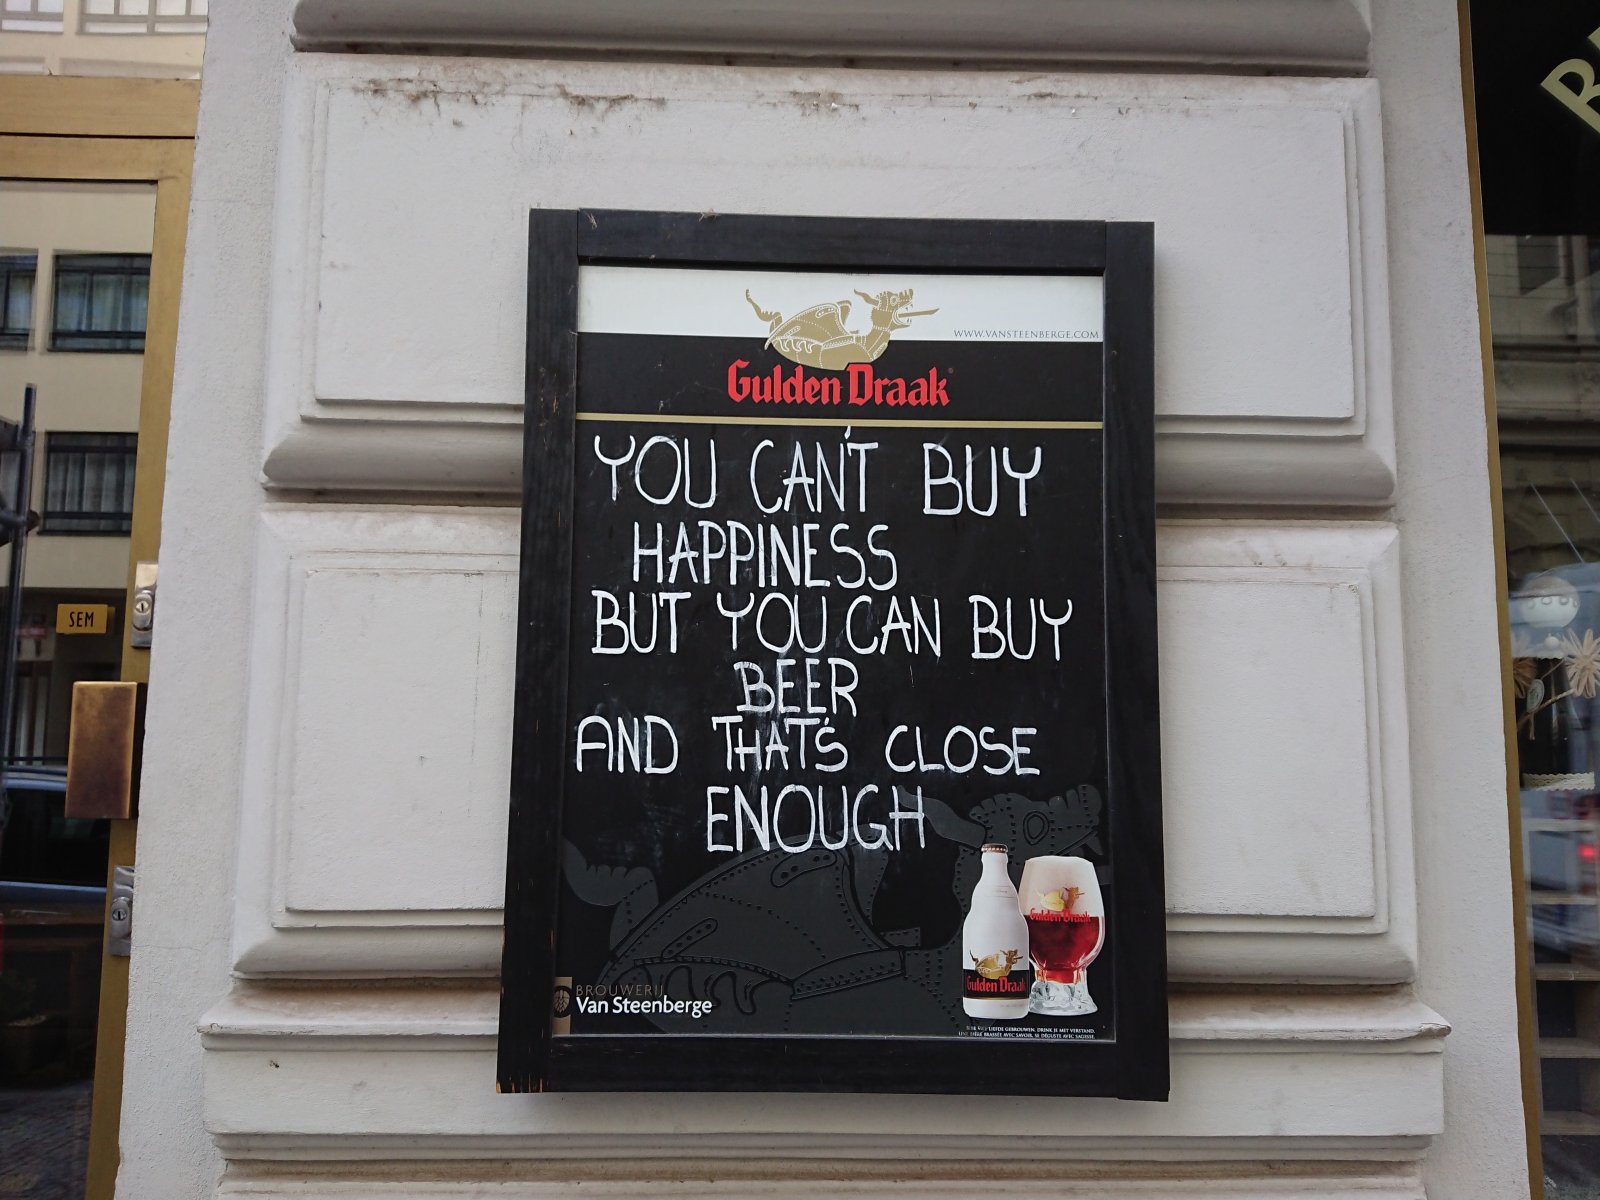 WWW.VANSTEENBERGE.COM
Gulden Draak
YOU CAN'T BUY
HAPPINESS
BUT YOU CAN BUY
BEER
AND THAT'S CLOSE
ENOUGH
SEM
Gulden Draak
Gulden Draak
BROUWERIJ
Van Steenberge
LIEFDE GEBROUWEN, DRINK JE MET VERSTAND.
UNE BIÈRE BRASSÉE AVEC SAVOIR, SE DÉGUSTE AVEC SAGESSE.